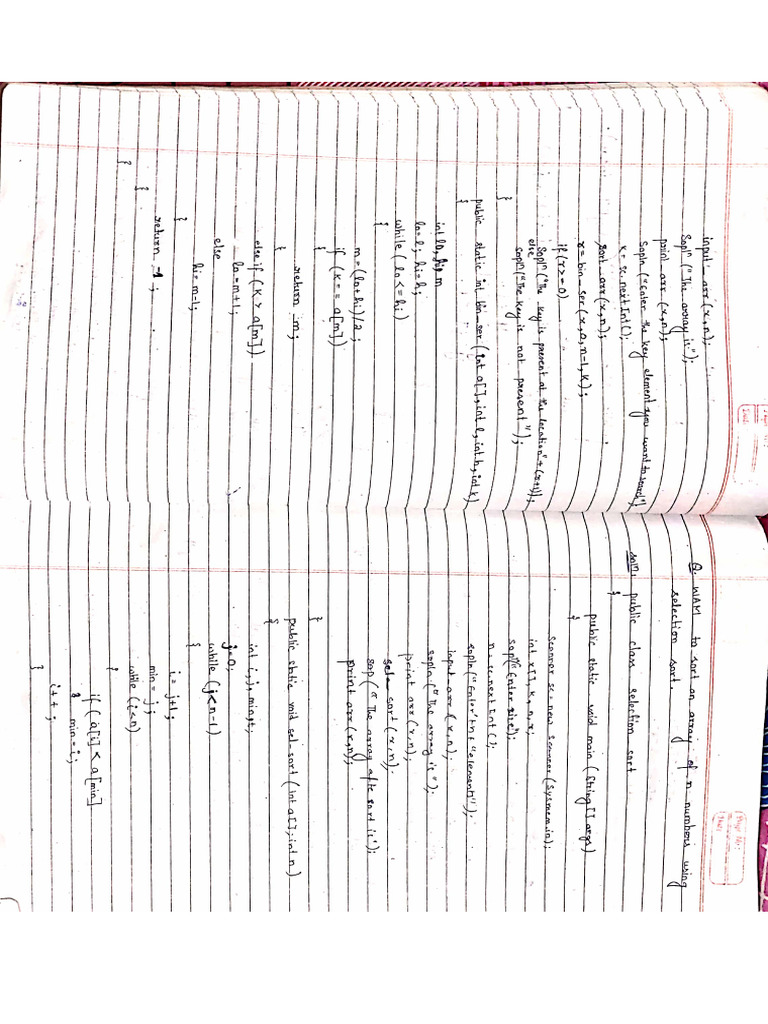 input_arr(x,n);
Sopln ("The array is");
print_arr (x,n);
Sopln ("Enter the key element you want to search");
k = sc.nextInt();
sort_arr(x,n);
r = bin_ser(x,0,n-1,k);
if(r>=0)
Sopln("The key is present at the location"+(r+1));
else
sopln("The key is not present");
}
public static int bin_ser(int a[], int l, int h, int k)
{
int lo, hi, m
lo=l; hi=h;
while(lo<=hi)
{
m=(lo+hi)/2;
if (k == a[m])
{
return m;
}
else if (k > a[m])
lo=m+1;
else
hi=m-1;
}
return -1;
}
}
Page No:
Q. WAM to sort an array of n numbers using
selection sort.
soln. public class selection sort
{
public static void main (String[] args)
{
Scanner sc = new Scanner(System.in);
int x[], k, n, r;
sopln("Enter size");
n = sc.nextInt();
sopln("Enter"+n+"element");
input_arr(x,n);
sopln("The array is");
print arr(x,n);
sel_sort(x,n);
sop("The array after sort is");
print arr(x,n);
}
public static void sel_sort(int a[], int n)
{
int i, j, min, t;
j=0;
while (j<n-1)
{
i = j+1;
min = j;
while (i<n)
{
if (a[i] < a[min]
min = i;
i++;
}